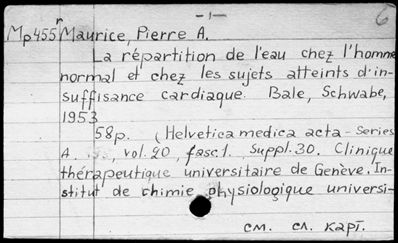 -1-
6
Mp455r Maurice, Pierre A.
La répartition de l'eau chez l'homme
normal et chez les sujets atteints d'in-
suffisance cardiaque. Bale, Schwabe,
1953
58p. (Helvetica medica acta - Series
A. vol. 20, fasc. 1. Suppl. 30. Clinique
thérapeutique universitaire de Genève. In-
stitut de chimie physiologique universi-
см. сл. карт.